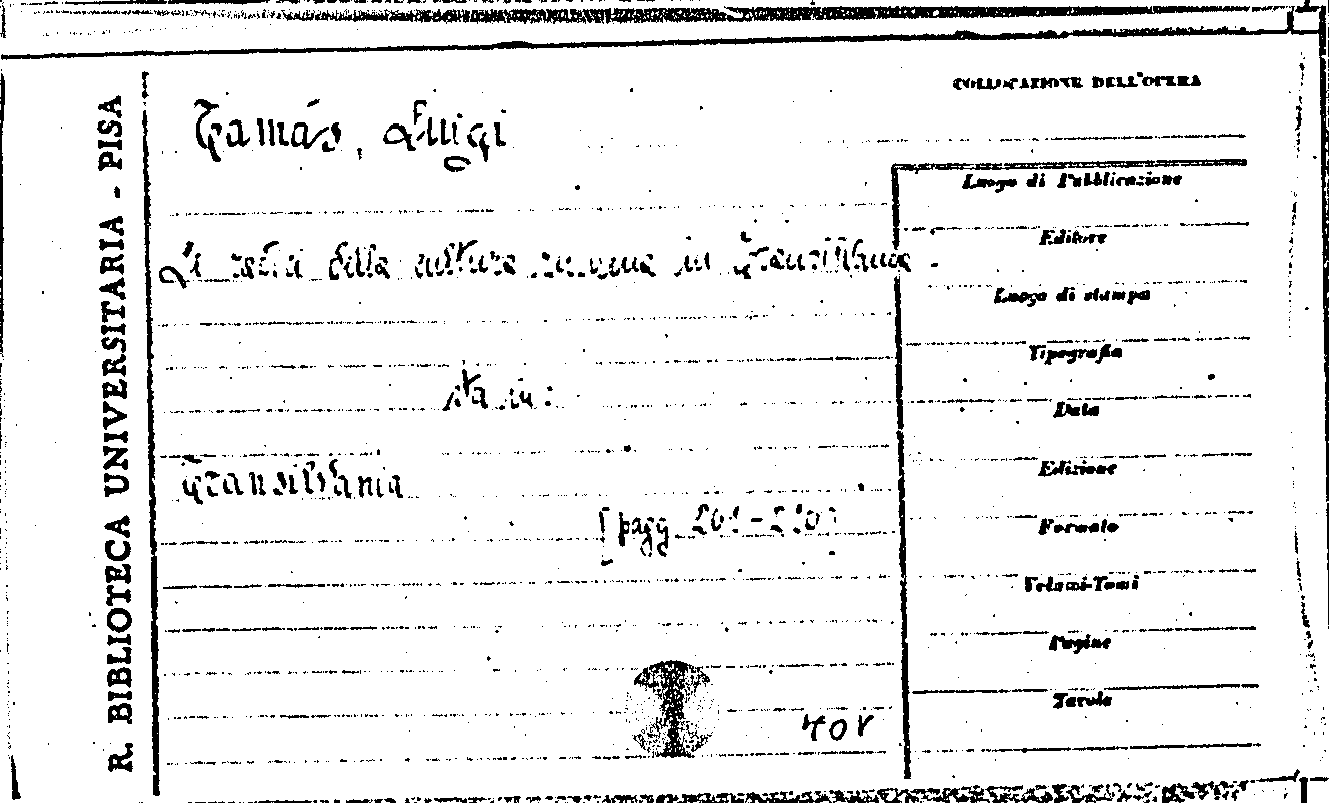 R. BIBLIOTECA UNIVERSITARIA - PISA
COLLOCAZIONE DELL'OPERA
Tamás, Luigi
della cultura romena in Transilvania.
sta in:
Transilvania
[pagg. 201-210]
Luogo di Pubblicazione
Editore
Luogo di stampa
Tipografia
Data
Edizione
Formato
Volumi-Tomi
Pagine
Tavole